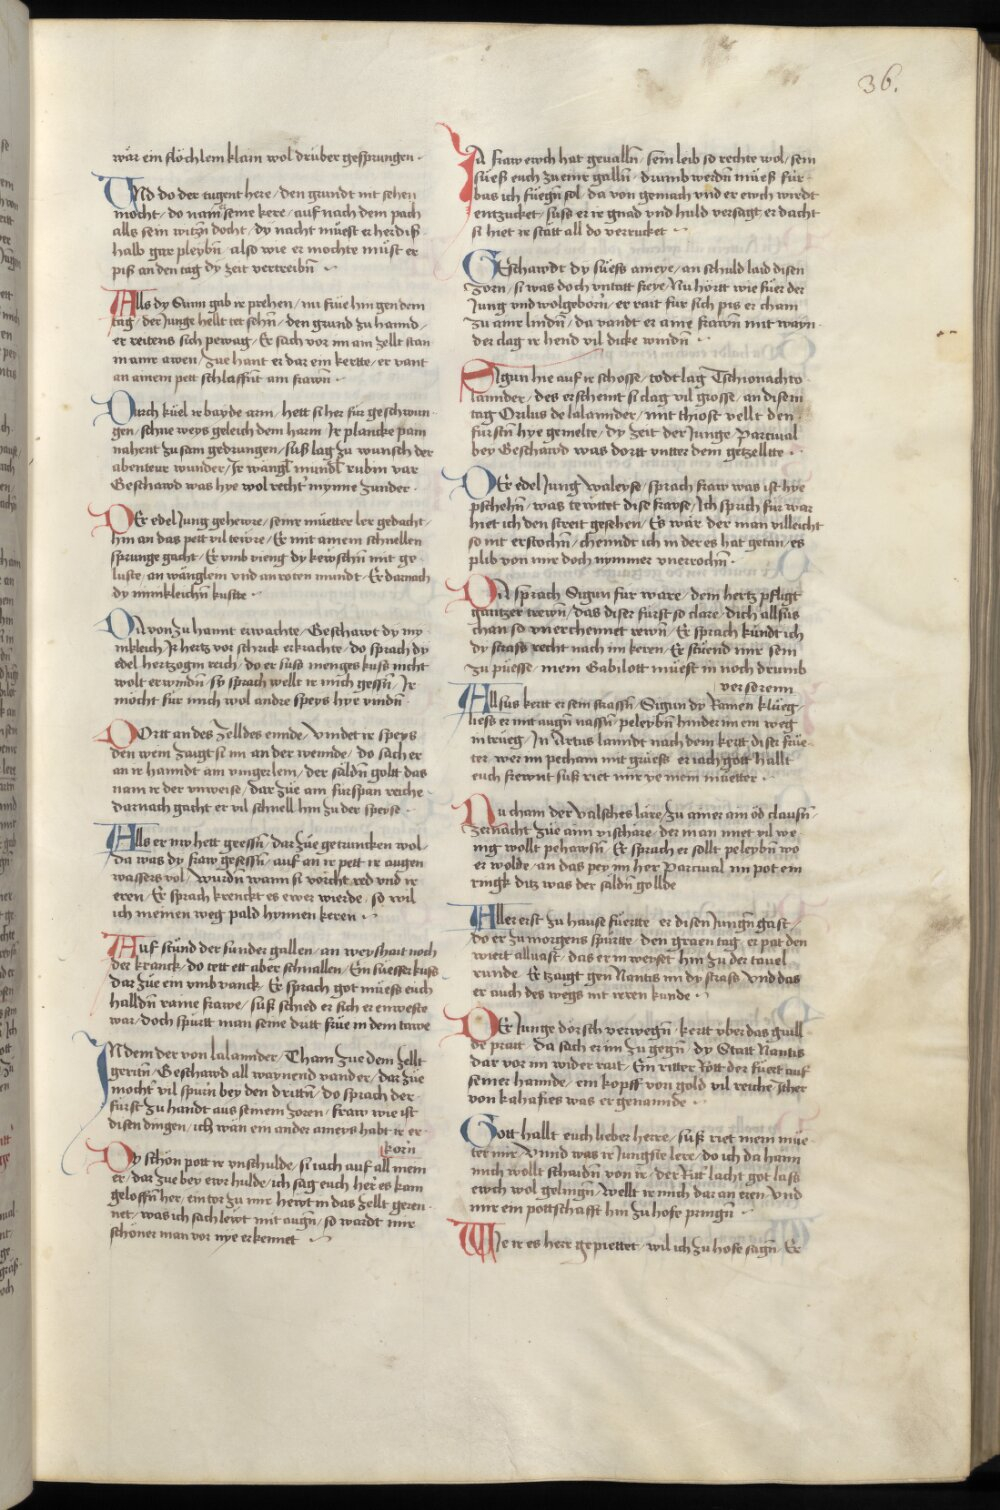 36.
wär ein flöchlem klain wol drüber gesprungen ·
Vnd do der tugent here / den grundt nit sehen
mocht / do nam seine kere / auf nach dem pach
alls sein witzn docht / dy nacht müest er herdiß
halb gar pleybn̄ also wie er mochte müst er
piß an den tag dy zeit vertreibn̄ ·
Alls dy Sunn gab ir prehen / nu früe hin gen dem
tag / der Junge hellt ter sehn̄ / den grund zu hannd /
er reitens sich pewag / Er sach vor im ain zellt stan
in ainr awen / zue hant er dar ein kertte / er vant
an ainem pett schlaffūt ain frawn̄ ·
Durch küel ir bayde arm / hett si her für geschwun
gen / schne weys geleich dem harm / Ir plancke pain
nahent zu sam gedrungen / süß lag zu wunsch der
abenteur wunder / Ir wangl mundl rubin var
Geschawd was hye wol recht mynne zunder ·
Der edel Jung gehewre / seinr müetter ler gedacht /
hin an das pett vil tewre / Er mit ainem schnellen
sprunge gacht / Er vmb vieng dy kewschn̄ mit ge
luste / an wänglem vnd an roten mundt / Er darnach
dy minikleichn̄ kustte ·
Die von zu hannt erwachte / Geschawt dy my
nikleich / Ir hertz vor schrick erkrachte / do sprach dy
edel hertzogin reich / do er süss meniges kuss nicht
wolt erwindn̄ / sy sprach wellt ir mich gessn̄ / Ir
möcht für mich wol andre speys hye vindn̄ ·
Dortt an des zelldes einde / vindet ir speys
den wein zaigt si im an der wennde / do sach er
an ir hanndt ain vingerlem / der säldn̄ goltt das
nam ir der vnweise / dar zue ain fürspan reiche
darnach gacht er vil schnell hin zu der speyse ·
Alls er nw hett geessn̄ / dar zue getruncken wol
da was dy fraw gesessn̄ / auf an ir pett ir augen
wassers vol / wurdn̄ wann si vorcht red vnd ir
eren / Er sprach krenckt es ewer wierde / so wil
ich meinen weg pald hynnen keren ·
Auf stünd der sunder gallen / an weyshait noch
der kranck / do tett ett aber schnallen / Ein süesser kuss
dar zue ein vmb vanck / Er sprach got müess euch
halldn̄ raine frawe / süß schied er sich er enweste
war / doch spürtt man seine dritt früe in dem tawe
In dem der von lalannder / Cham zue dem zellt
geritn̄ Geschawd all waynend vander / dar zue
mocht vil spürn bey den drittn̄ / do sprach der
fürst zu handt aus seinem zoren / fraw wie ist
disen dingen / ich wän ein ander ameys habt ir er
korn
Dy schön pott ir vnschulde / si iach auf all mein
er / dar zue bey ewr hulde / ich sag euch her es kam
geloffn̄ her / ein tor zu mir hewt in das zellt geren
net / was ich sach lewt mit augn̄ / so wardt mir
schöner man vor nye erkennet ·
Ja fraw ewch hat geualln̄ / sein leib so rechte wol / sein
süess euch zu einr galln̄ / drumb werdn̄ müess für
bas ich füegn̄ sol / da von gemach vnd er ewch wirdt
entzucket / süss er ir gnad vnd huld versagt / er dacht
si hiet ir statt all do verrucket ·
Geschawdt dy süess ameye / an schuld laid disen
zorn / si was doch vntatt freye / Nu hörtt wie füer der
Jung vnd wolgeborn̄ / er rait für sich pis er cham
zu ainr lindn̄ / da vandt er aine frawn̄ mit wayn
der clag ir hend vil dicke windn̄ ·
Sigun hie auf ir schosse / todt lag Tschionachto
lannder / des erscheint si clag vil grosse / an disem
tag Orilus de lalannder / mit thiost vellt den
fürstn̄ hye gemelte / dy zeit der Junge Parcival
bey Geschawd was dortt vntter dem getzelltte ·
Der edel Jung waleyse / sprach fraw was ist hye
pschehn̄ / was tewttet dise frayse / Ich sprich für war
hiet ich den streit gesehen / Es wär der man villeicht
so nit erstochn̄ / chenndt ich in der es hat getan / es
plib von mir doch nymmer vnerrochn̄ ·
Die sprach Sigun für ware / dem hertz pfligt
gantzer trewn̄ / das diser fürst so clare / dich allsüs
chan so vnerchennet rewn̄ / Er sprach kündt ich
dy strass recht nach im keren / Er stüend mir sein
zu püesse / mein Gabilott müest in noch drumb
verserenn
Allsus kertt er sein strassn̄ / Sigun dy Rainen klüeg /
liess er mit augn̄ nassn̄ / peleybn̄ hinder im ein weg
in trüeg / In Artus lanndt nach dem kertt diser früe
ter / wer im pecham mit grüess er iach gott hallt
euch frewnt suß riet mir ye mein müetter ·
Nu cham der valsches läre / zu ainer ain öd clausn̄
zernacht zue ainn vischäre / der man niet vil we
nig wollt pehawsn̄ / Er sprach er sollt peleybn̄ wo
er wolde / an das pey im her Parcival im pot ein
ringk ditz was der säldn̄ gollde
Aller erst zu hause füertte er disen Jungn̄ gast /
do er zu morgens spürtte / den graen tag / er pat den
wiert alluast / das er in weyset hin zu der tauel
runde / Er tzaigt gen Nantis im dy strass vnd das
er auch des wegs nit wern kunde ·
Der Junge dorsch verwegn̄ / kertt vber das quill
de pratt / da sach er im zu gegn̄ / dy Statt Nantis
dar vor im wider rait / Ein ritter rott der füert auf
seiner hannde / ein kopff von gold vil reiche / Ither
von kahafies was er genannde ·
Gott hallt euch lieber herre / suß riet mein müe
ter mir / Vnnd was ir Jungste lere / do ich da haim
mich wollt schaidn̄ von ir / der Ritt lacht got lass
ewch wol gelingn̄ / wellt ir mich dar an eren / Vnd
mir ein pottschafft hin zu hofe pringn̄ ·
Wie ir es herr gepiettet / wil ich zu hofe sagn̄ / Er